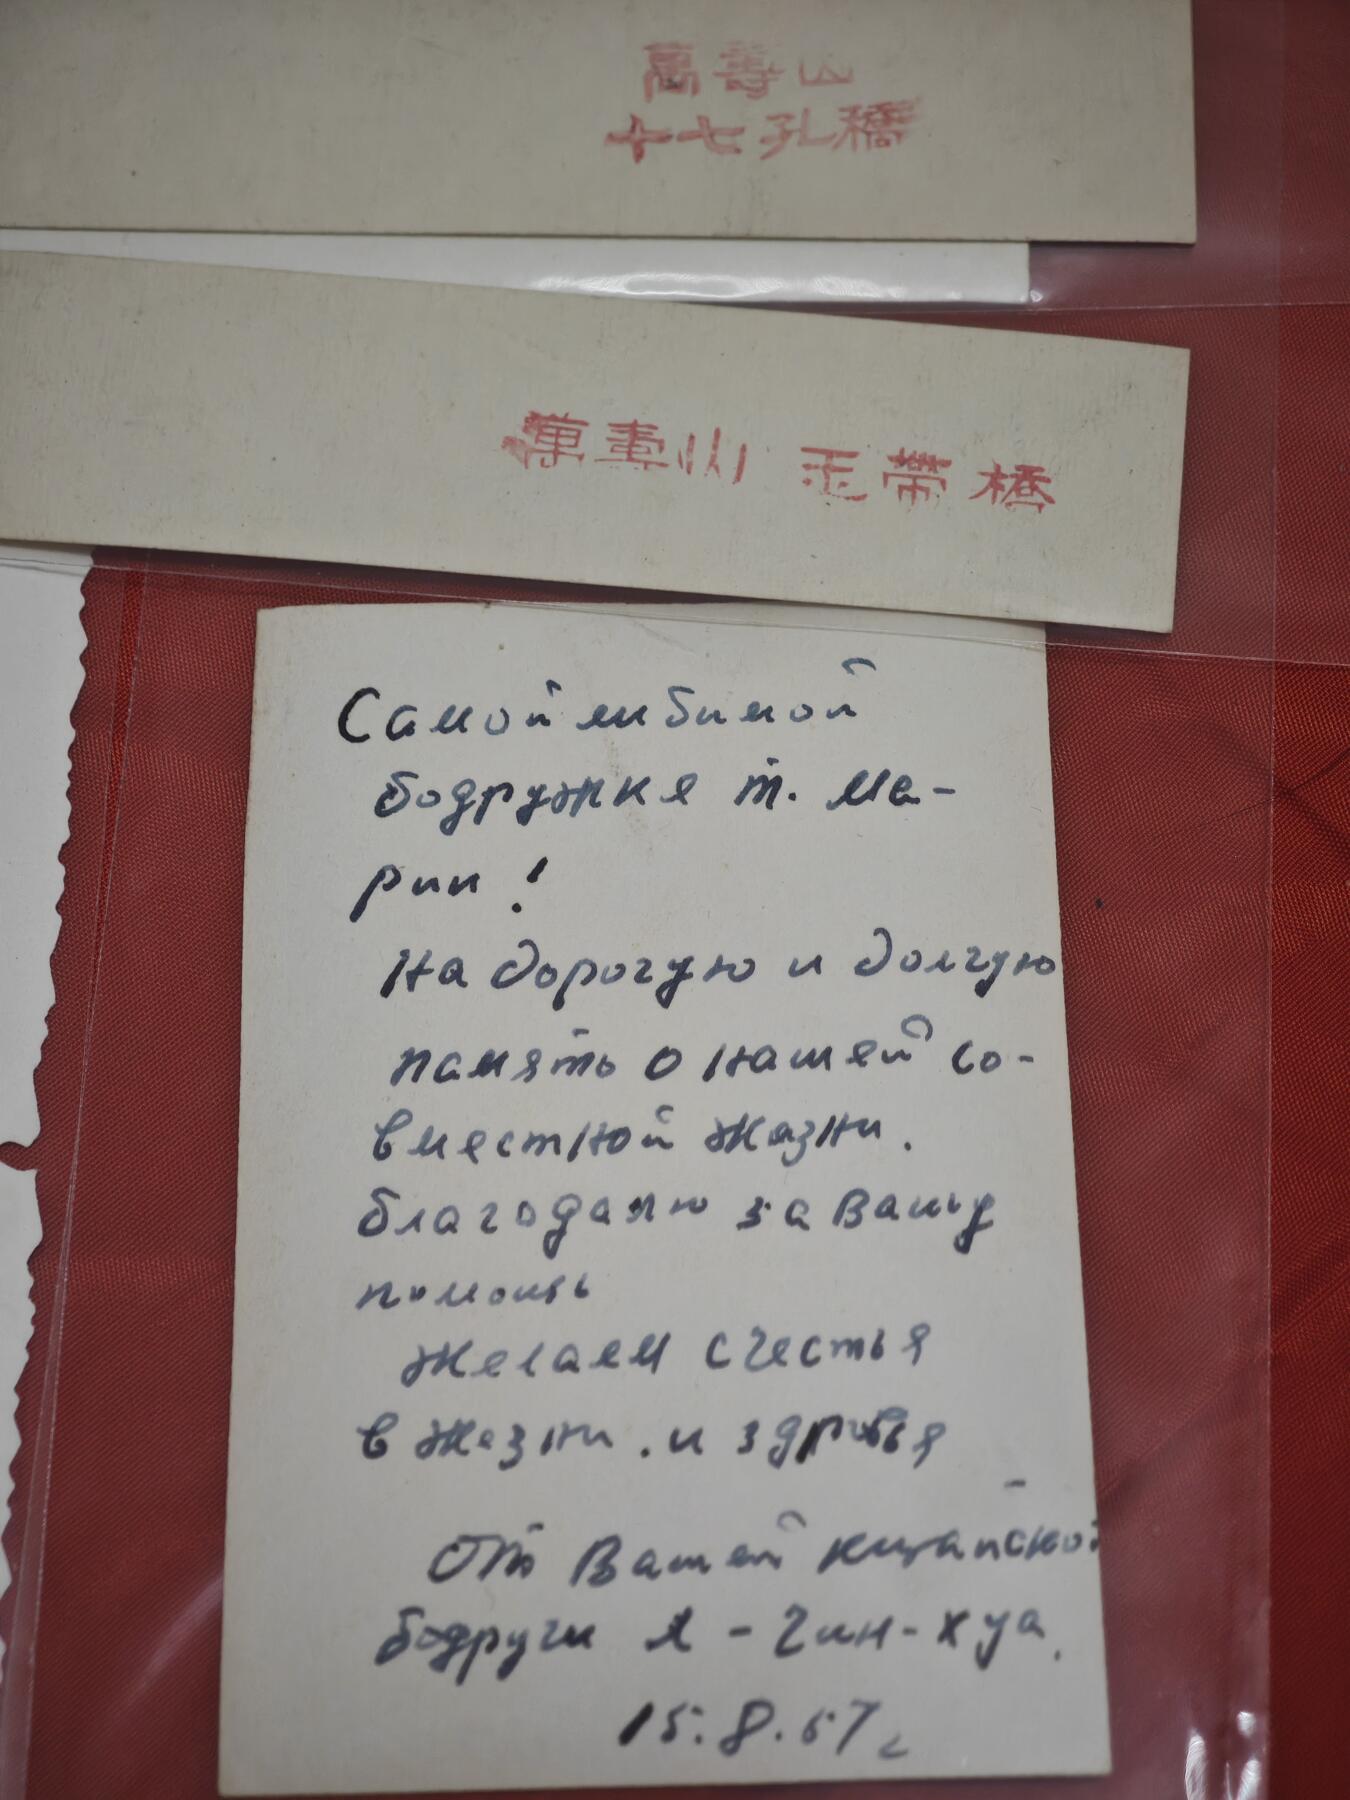 萬壽山
十七孔橋
萬壽山 玉帶橋
Самой любимой
бодружке т. Ма-
рии!
На дорогую и долгую
память о нашей со-
вместной жизни.
благодалю за Вашу
помощь
желаем счестья
в жезни . и здровья
От Вашей китайской
бодруги Л - Чин-хуа.
15.8.57г